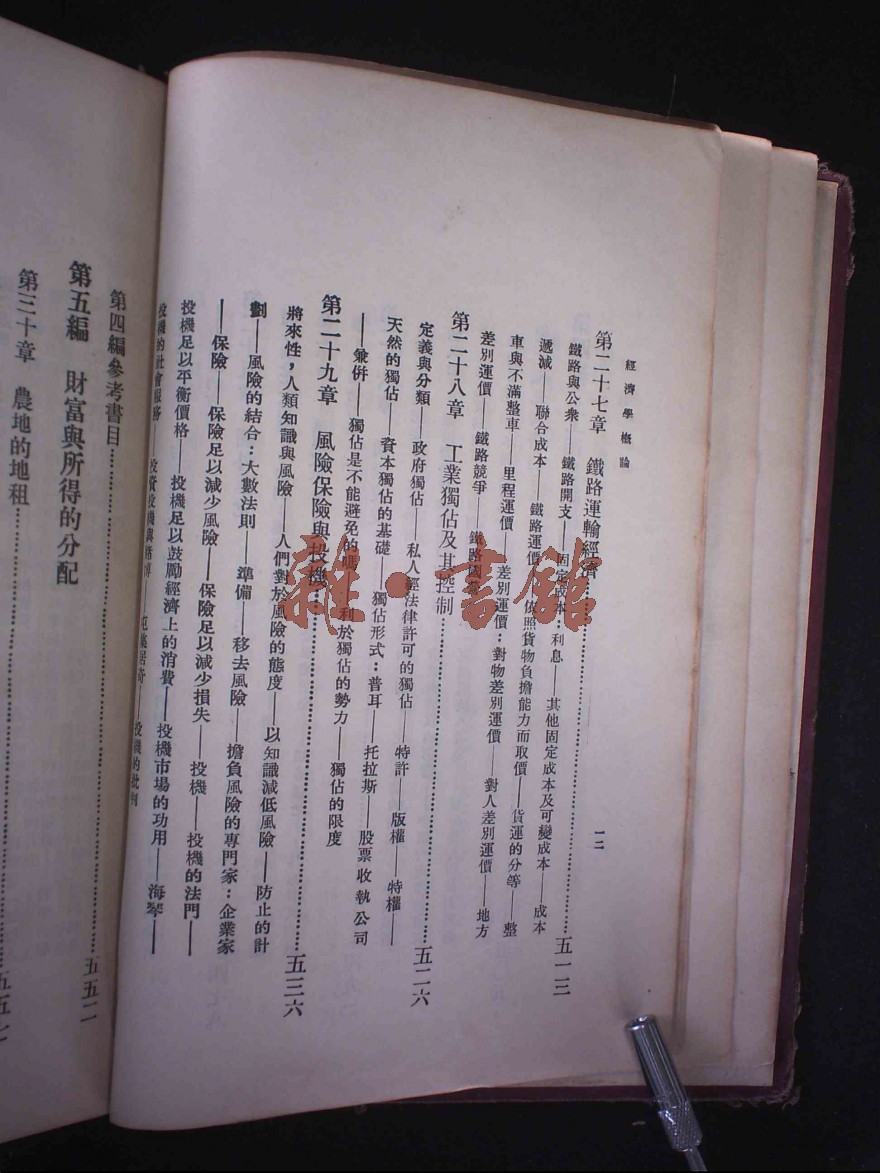 經濟學概論
一二
第二十七章 鐵路運輸經濟……五一三
鐵路與公衆——鐵路開支——固定成本——利息——其他固定成本及可變成本——成本
遞減——聯合成本——鐵路運價——依照貨物負擔能力而取價——貨運的分等——整
車與不滿整車——里程運價——差別運價:對物差別運價——對人差別運價——地方
差別運價——鐵路競爭——鐵路國營
第二十八章 工業獨佔及其控制……五二六
定義與分類——政府獨佔——私人經法律許可的獨佔——特許——版權——特權——
天然的獨佔——資本獨佔的基礎——獨佔形式:普耳——托拉斯——股票收執公司
——兼併——獨佔是不能避免的嗎——利於獨佔的勢力——獨佔的限度
第二十九章 風險保險與投機……五三六
將來性,人類知識與風險——人們對於風險的態度——以知識減低風險——防止的計
劃——風險的結合:大數法則——準備——移去風險——擔負風險的專門家:企業家
——保險——保險足以減少風險——保險足以減少損失——投機——投機的法門——
投機足以平衡價格——投機足以鼓勵經濟上的消費——投機市場的功用——海琴——
投機的社會服務——投資投機與賭博——囤集居奇——投機的批判
第四編參考書目……五五二
第五編 財富與所得的分配
第三十章 農地的地租……
雜·書館